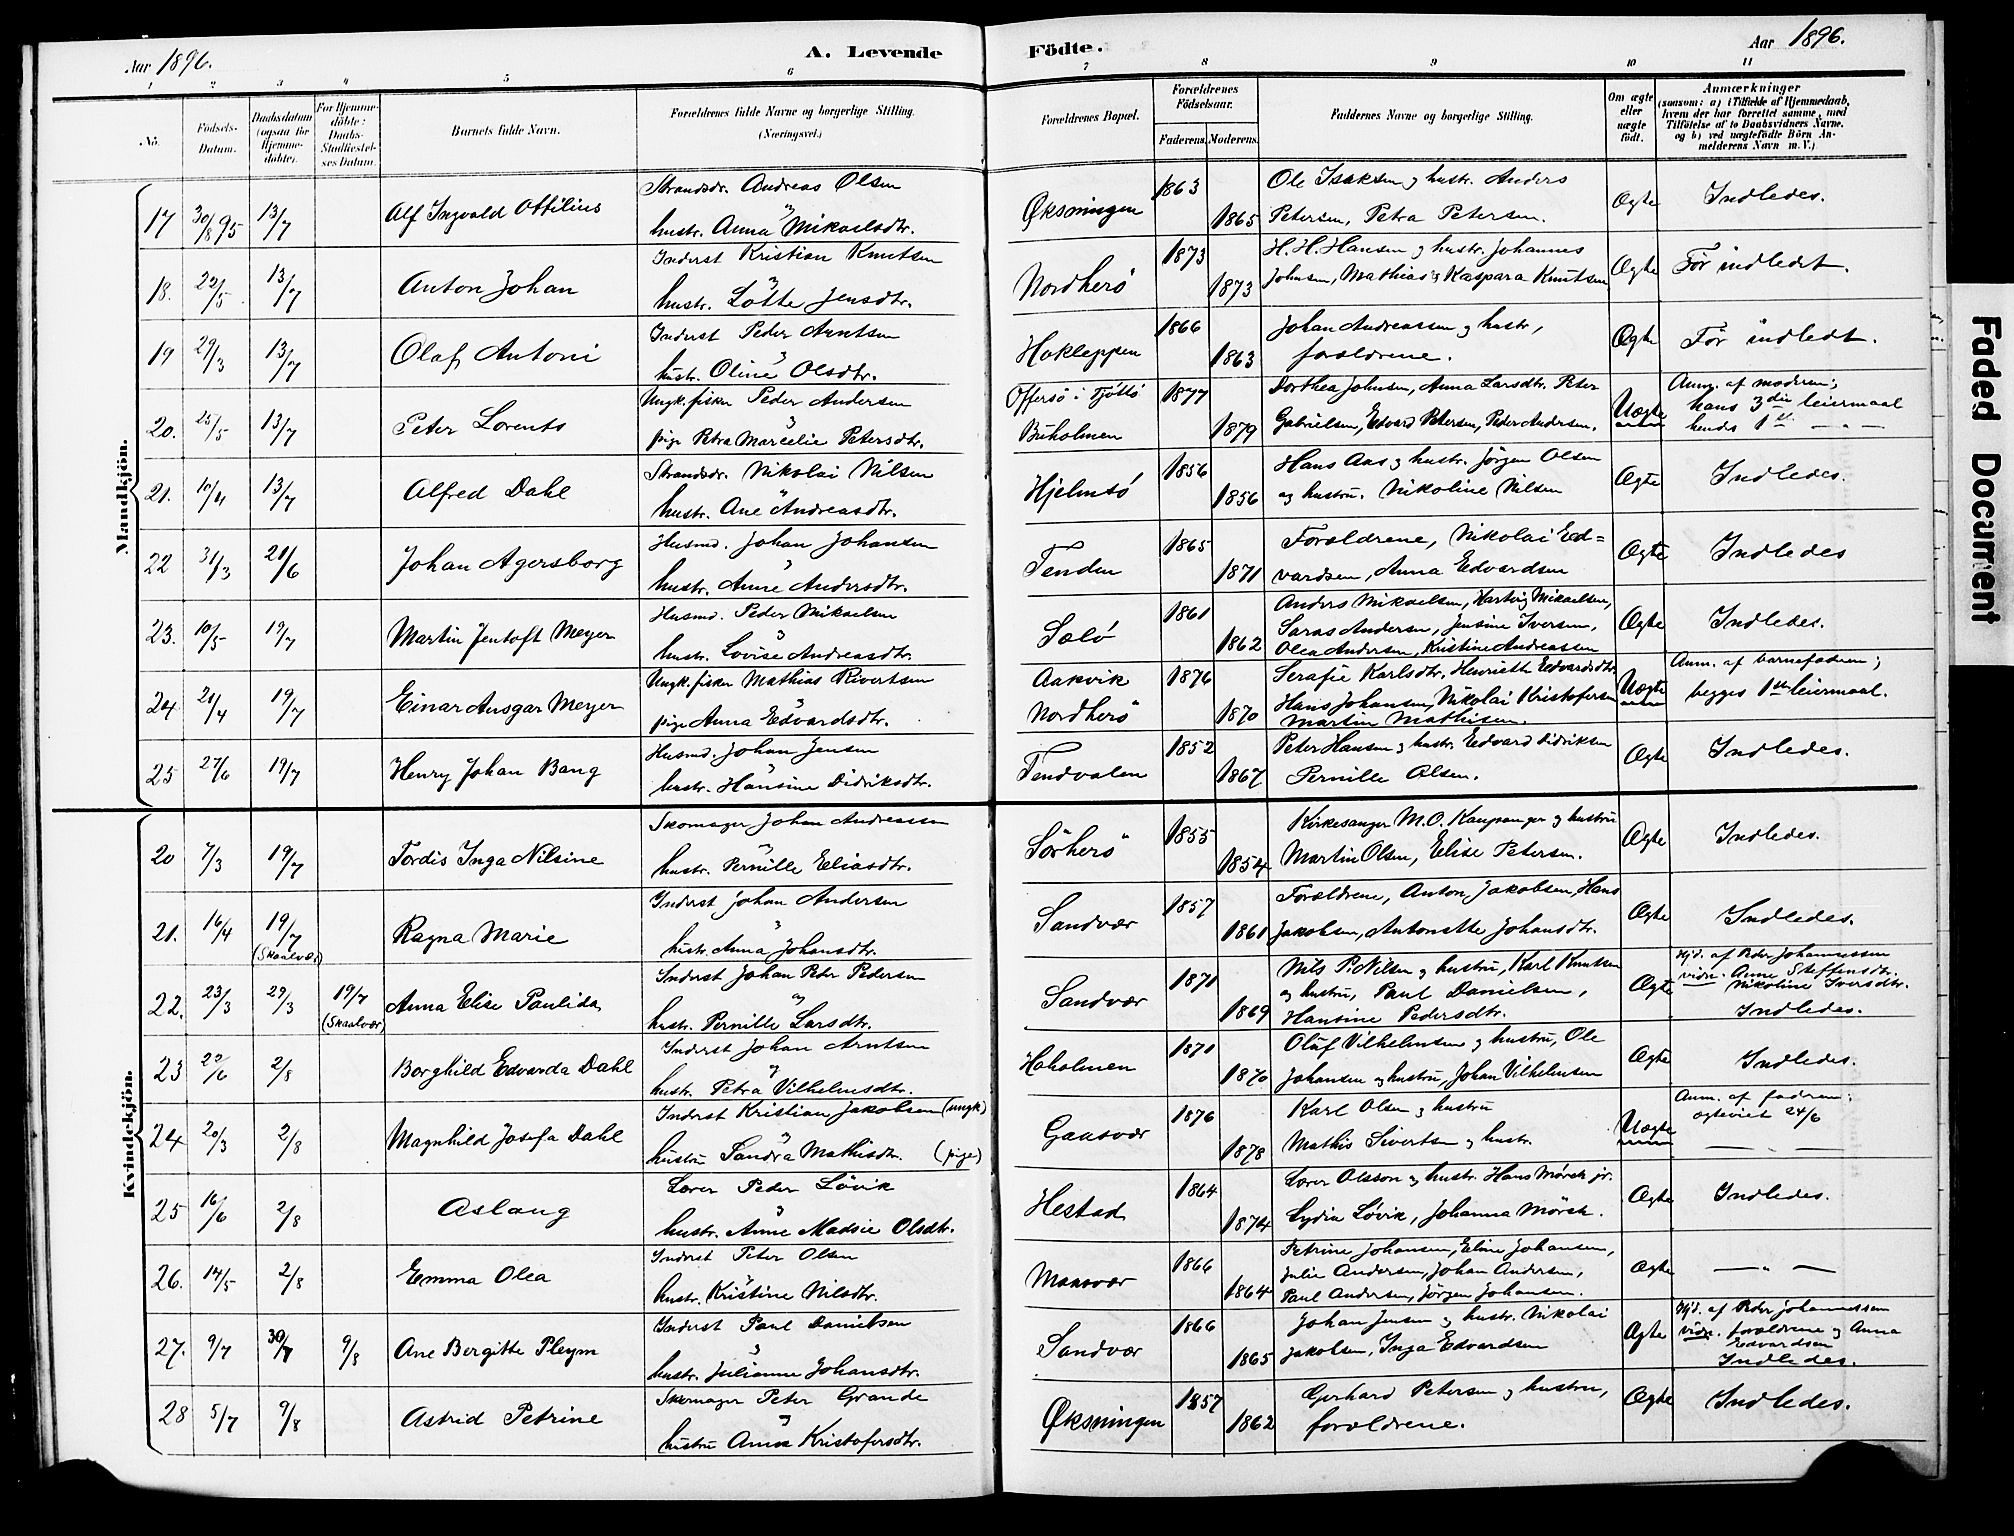 Aar 1896.
A. Levende Födte.
Aar 1896.
1 2 3 4 5 6 7 8 9 10 11
No. Födsels-Datum. Daabsdatum (ogsaa for Hjemmedöbte). For Hjemmedöbte: Daabs-Stadfæstelses Datum. Barnets fulde Navn. Forældrenes fulde Navne og borgerlige Stilling. (Næringsvei.) Forældrenes Bopæl. Forældrenes Födselsaar. Faderens. Moderens. Faddernes Navne og borgerlige Stilling. Om ægte eller uægte födt. Anmærkninger (saasom: a) i Tilfælde af Hjemmedaab, hvem der har forrettet samme, med Tilföielse af to Daabsvidners Navne, og b) ved uægtefödte Börn Anmelderens Navn m. V.)
Mandkjön.
17 30/8 95 13/7 Alf Ingvald Ottilius Strandsdr. Andreas Olsen Øksningen 1863 Ole Isaksen og hustr. Anders Ægte Indledes.
hustr. Anna Mikaelsdtr. 1865 Petersen, Petra Petersen.
18. 22/5 13/7 Anton Johan Inderst Kristian Knutsen Nordherö 1873 H. H. Hansen og hustr. Johannes Ægte Før indledt.
hustr. Lotte Jensdtr. 1873 Johnsen, Mathias og Kaspara Knutsen
19 29/3 13/7 Olaf Antoni Inderst Peder Arntsen Hakleppen 1866 Johan Andreassen og hustr, Ægte Før indledt.
hustr. Oline Olsdtr. 1863 forældrene.
20. 25/5 13/7 Peter Lorents Ungk. fisker Peder Andersen Offersö i Tjöttö 1877 Dorthea Johnsen, Anna Larsdtr. Peter Uægte Anm. af moderen;
pige Petra Marcelie Petersdtr. Buholmen 1879 Gabrielsen, Edvard Petersen, Peder Andersen. hans 3die leiermaal
hendes 1ste — " —
21. 10/4 13/7 Alfred Dahl Strandsdr. Nikolai Nilsen Hjelmsö 1856 Hans Aas og hustr. Jörgen Olsen Ægte Indledes.
hustr. Ane Andreasdtr. 1856 og hustru. Nikoline Nilsen
22 31/3 21/6 Johan Agersborg Husmd. Johan Johansen Tenden 1865 Forældrene, Nikolai Ed= Ægte Indledes
hustr. Anne Andersdtr. 1871 vardsen, Anna Edvardsen
23. 10/5 19/7 Martin Jentoft Meyer Husmd. Peder Mikaelsen Sælö 1861 Anders Mikaelsen, Hartvig Mikaelsen, Ægte Indledes.
hustr. Lovise Andreasdtr. 1862 Saras Andersen, Jensine Iversen,
Olea Andersen, Kristine Andreassen
24 21/4 19/7 Einar Ansgar Meyer Ungk. fisker Mathias Rivertsen Aakvik 1876 Serafie Karlsdtr, Henriette Edvardsdtr Uægte Anm. af barnefaderen;
pige Anna Edvardsdtr. Nordherö 1870 Hans Johansen, Nikolai Kristofersen begges 1ste leiermaal.
Martin Mathisen.
25 27/6 19/7 Henry Johan Bang Husmd. Johan Jensen Tendvalen 1852 Peter Hansen og hustr. Edvard Didriksen Ægte Indledes.
hustr. Hansine Didriksdtr. 1867 Pernille Olsen.
Kvindekjön.
20 7/3 19/7 Tordis Inga Nilsine Skomager Johan Andreassen Sörherö 1855 Kirkesanger M. O. Kaupanger og hustru Ægte Indledes.
hustr. Pernille Eliasdtr. 1854 Martin Olsen, Elise Petersen.
21. 16/4 19/7 (Skaalvær) Ragna Marie Inderst Johan Andersen Sandvær 1857 Forældrene, Anton Jakobsen, Hans Ægte Indledes.
hustr. Anna Johansdtr. 1861 Jakobsen, Antonette Johansdtr.
22. 23/3 29/3 19/7 (Skaalvær) Anna Elise Paulida Inderst Johan Peter Pedersen Sandvær 1871 Nils P. Nilsen og hustru, Karl Knutsen Ægte Hjd. af Peder Johannessen
hustr. Pernille Larsdtr. 1869 og hustru, Paul Danielsen, vidn. Anne Steffensdtr.
Hansine Pedersdtr. Nikoline Iversdtr.
Indledes.
23 22/6 2/8 Borghild Edvarda Dahl Inderst Johan Arntsen Haholmen 1870 Oluf Vilhelmsen og hustru, Ole Ægte Indledes.
hustr. Petra Vilhelmsdtr. 1870 Johansen og hustru, Johan Vilhelmsen
24 20/3 2/8 Magnhild Josefa Dahl Inderst Kristian Jakobsen (ungk) Gaasvær 1876 Karl Olsen og hustru Uægte Anm. af faderen;
hustru Sandra Mathisdtr. (pige) 1878 Mathis Sivertsen og hustr. ægteviet 24/6
— " —
25 16/6 2/8 Aslaug Lærer Peder Lövik Hestad 1864 Lærer Olsson og hustr. Hans Mörch jr. Ægte Indledes.
hustr. Anne Madsie Olsdtr. 1874 Lydia Lövik, Johanna Mörch.
26. 14/5 2/8 Emma Olea Inderst Peter Olsen Maasvær 1866 Petrine Johansen, Eline Johansen, Ægte — " —
hustr. Kristine Nilsdtr. 1864 Julie Andersen, Johan Andersen,
Paul Andersen, Jörgen Johansen.
27. 9/7 30/7 9/8 Ane Bergitte Pleym Inderst Paul Danielsen Sandvær 1866 Johan Jensen og hustr. Nikolai Ægte Hjd. af Peder Johannessen
hustr. Julianne Johansdtr. 1865 Jakobsen, Inga Edvardsen vidn. forældrene og Anna
Edvardsen
Indledes.
28 5/7 9/8 Astrid Petrine Skomager Peter Grande Øksningen 1857 Gerhard Petersen og hustru, Ægte Indledes.
hustru Anna Kristofersdtr. 1862 forældrene.
Faded Document